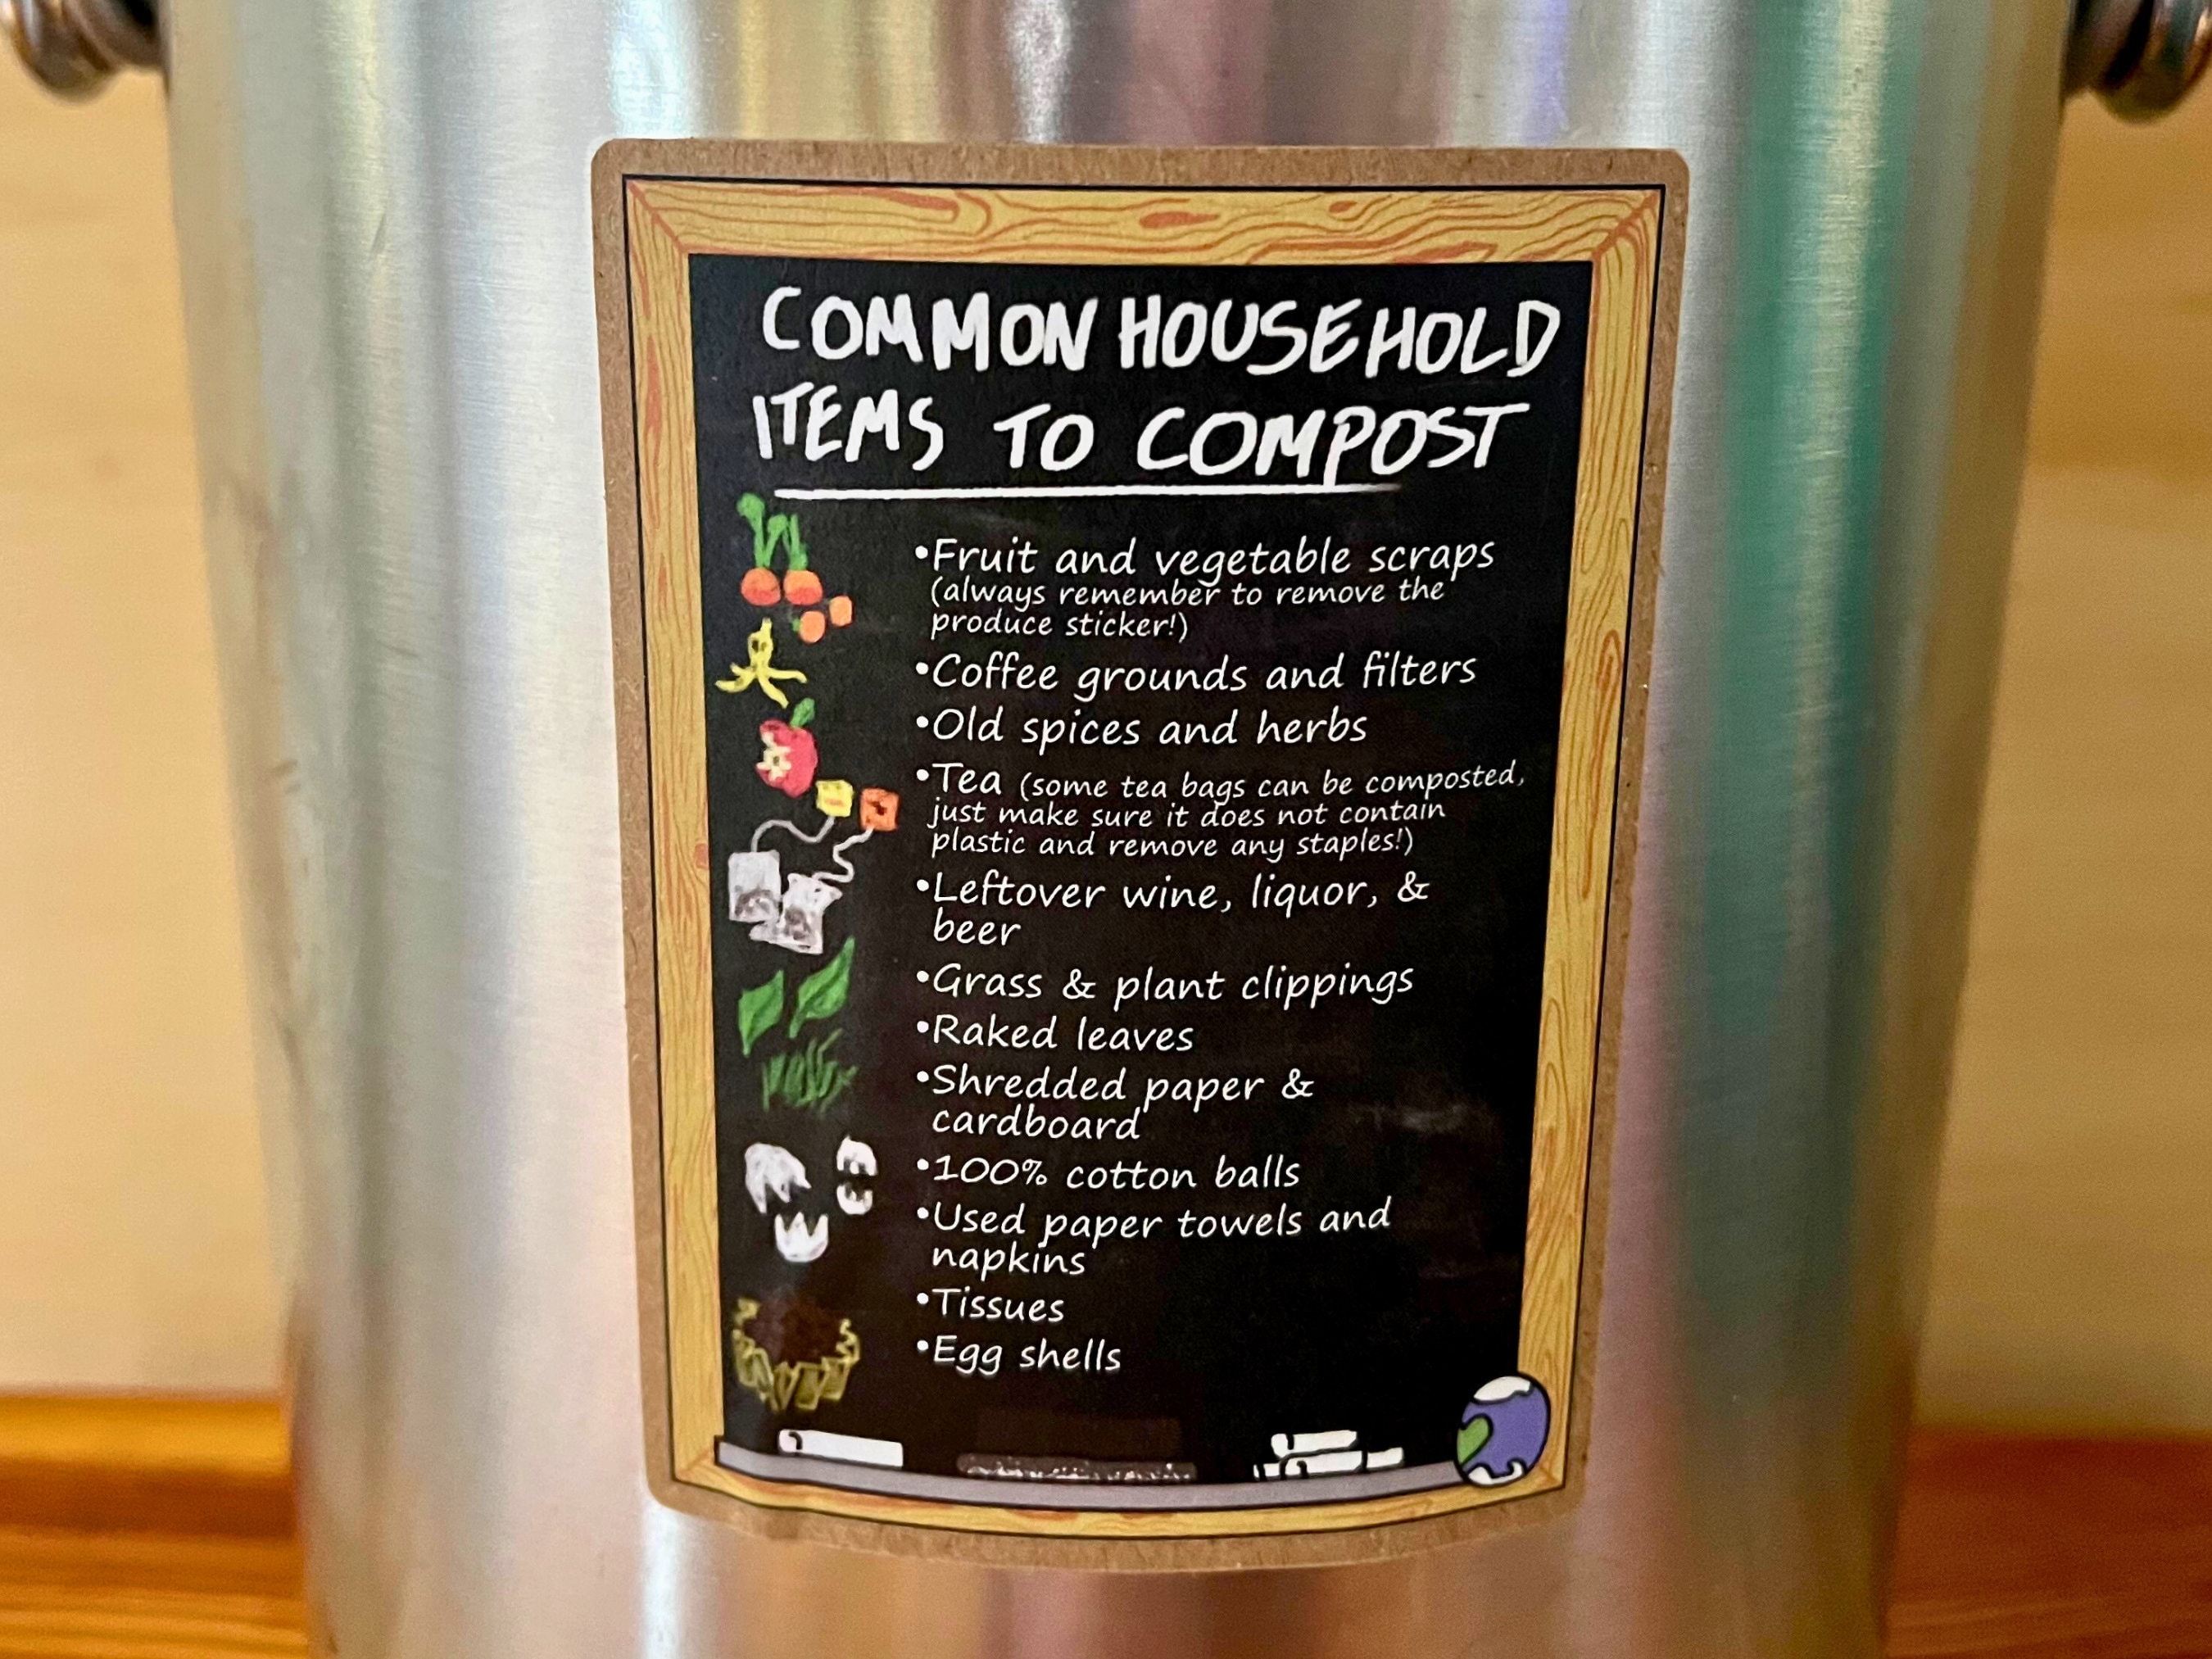 COMMON HOUSEHOLD
ITEMS TO COMPOST
•Fruit and vegetable scraps
(always remember to remove the
produce sticker!)
•Coffee grounds and filters
•Old spices and herbs
•Tea (some tea bags can be composted,
just make sure it does not contain
plastic and remove any staples!)
•Leftover wine, liquor, &
beer
•Grass & plant clippings
•Raked leaves
•Shredded paper &
cardboard
•100% cotton balls
•Used paper towels and
napkins
•Tissues
•Egg shells